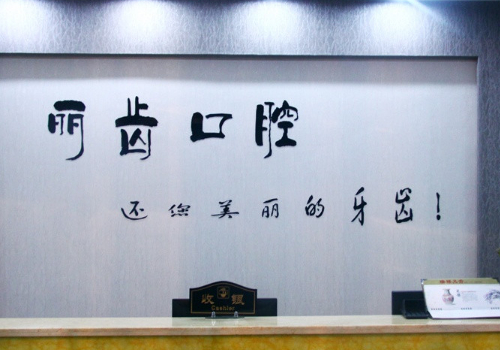 丽齿口腔
还您美丽的牙齿！
收银
Cashier